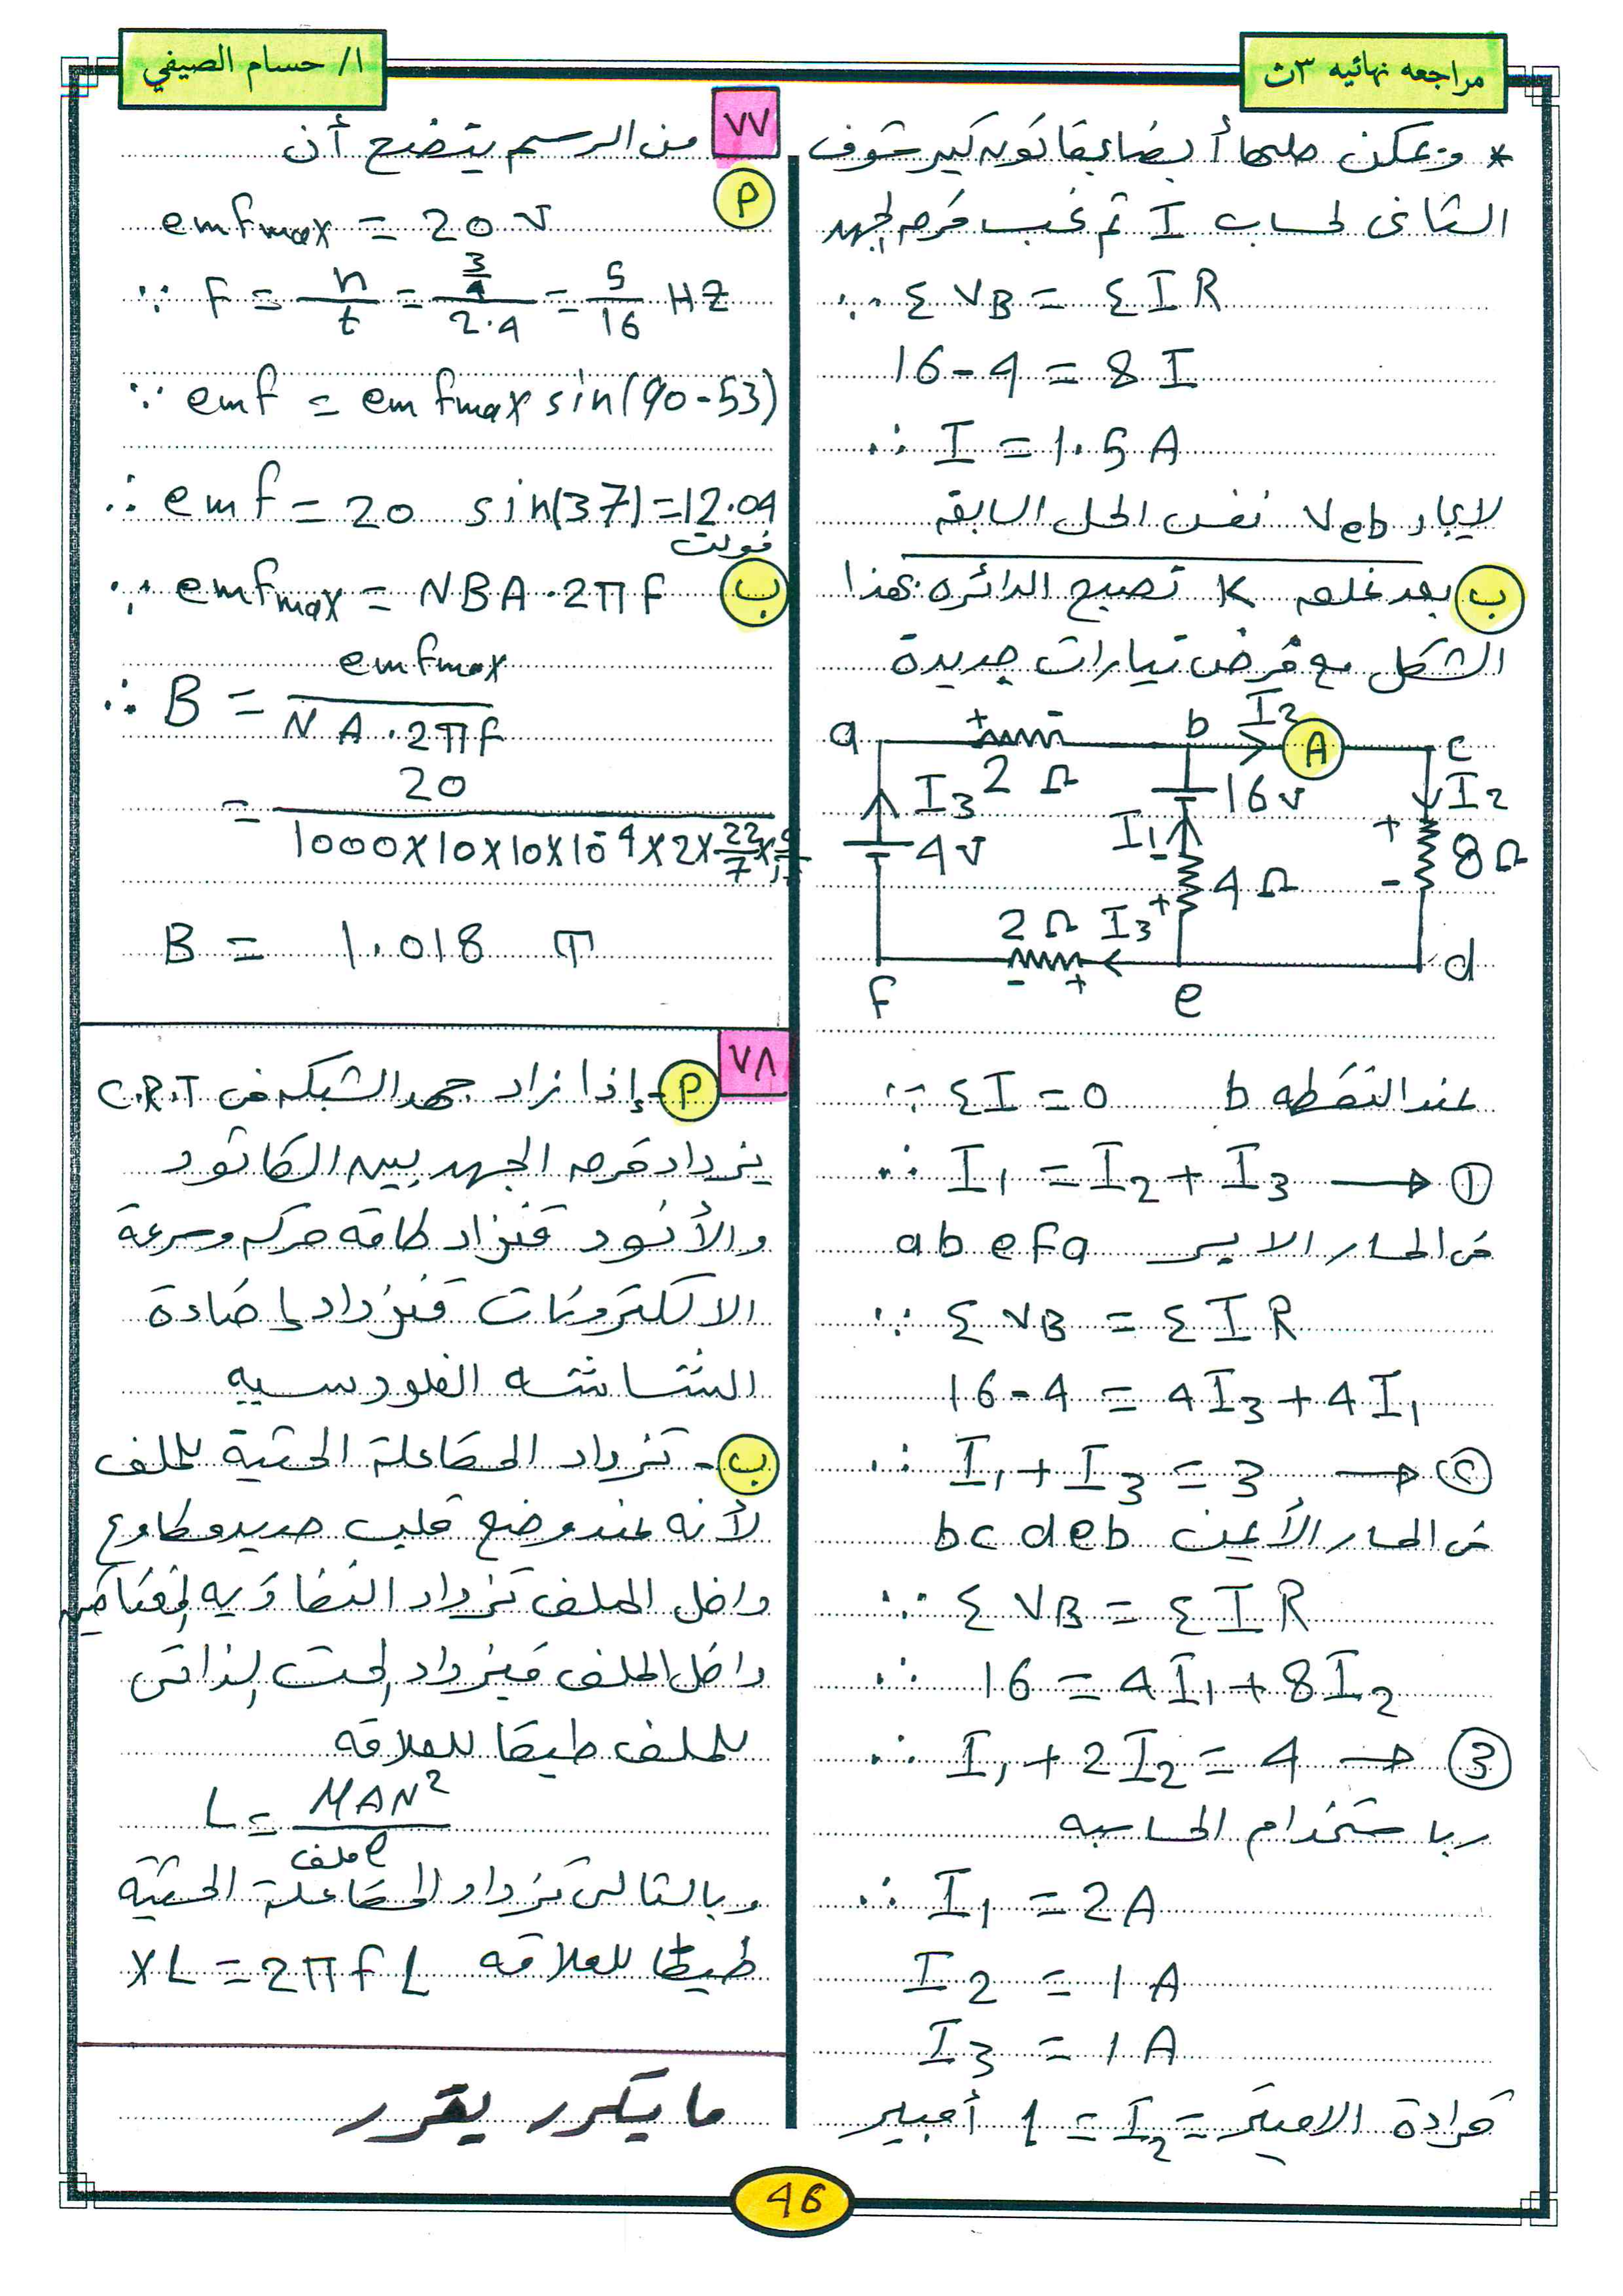 مراجعه نهائيه ٣ث
ا/ حسام الصيفي
* ويمكن حلها أيضا بقانون كيرشوف
الثانى لحساب I ثم نحسب فرق الجهد
∵ ΣVB = ΣIR
16-4 = 8I
∴ I = 1.5 A
لايجاد Veb نفس الحل السابق
ب بعد غلق K تصبح الدائره بهذا
الشكل مع فرض تيارات جديدة
a + - b I2 A c
2 Ω
I3 16v I2
4v I1 + 8Ω
- 4Ω -
2Ω I3 +
- + d
f e
عند النقطه b ∵ ΣI = 0
∴ I1 = I2 + I3 → ①
فى المسار الايسر abefa
∵ ΣVB = ΣIR
16-4 = 4I3 + 4I1
∴ I1 + I3 = 3 → ②
فى المسار الأيمن bcdeb
∵ ΣVB = ΣIR
∴ 16 = 4I1 + 8I2
∴ I1 + 2I2 = 4 → ③
وباستخدام الحاسبه
∴ I1 = 2A
I2 = 1A
I3 = 1A
قراءة الاميتر = I2 = 1 أمبير
٧٧ من الرسم يتضح أن
P
emfmax = 20 v
∵ F = n/t = (3/4)/2.4 = 5/16 HZ
∵ emf = emfmax sin(90-53)
∴ emf = 20 sin(37) = 12.04
فولت
ب ∵ emfmax = NBA.2πF
∴ B = emfmax / NA.2πf
= 20 / 1000×10×10×10⁻⁴×2×22/7×5/16
B = 1.018 T
٧٨ P - إذا زاد جهد الشبكه فى C.R.T
يزداد فرق الجهد بين الكاثود
والأنود فتزداد طاقه حركه وسرعة
الالكترونات فتزداد إضاءة
الشاشه الفلورسيه
ب - تزداد المفاعلة الحثية للملف
لأنه عند وضع قلب حديد مطاوع
داخل الملف تزداد النفاذيه المغناطيسيه
داخل الملف فيزداد الحث الذاتى
للملف طبقا للعلاقه
L = μAN² / l ملف
وبالتالى تزداد المفاعلة الحثية
طبقا للعلاقه XL = 2πfL
ما يتكرر يتقرر
46